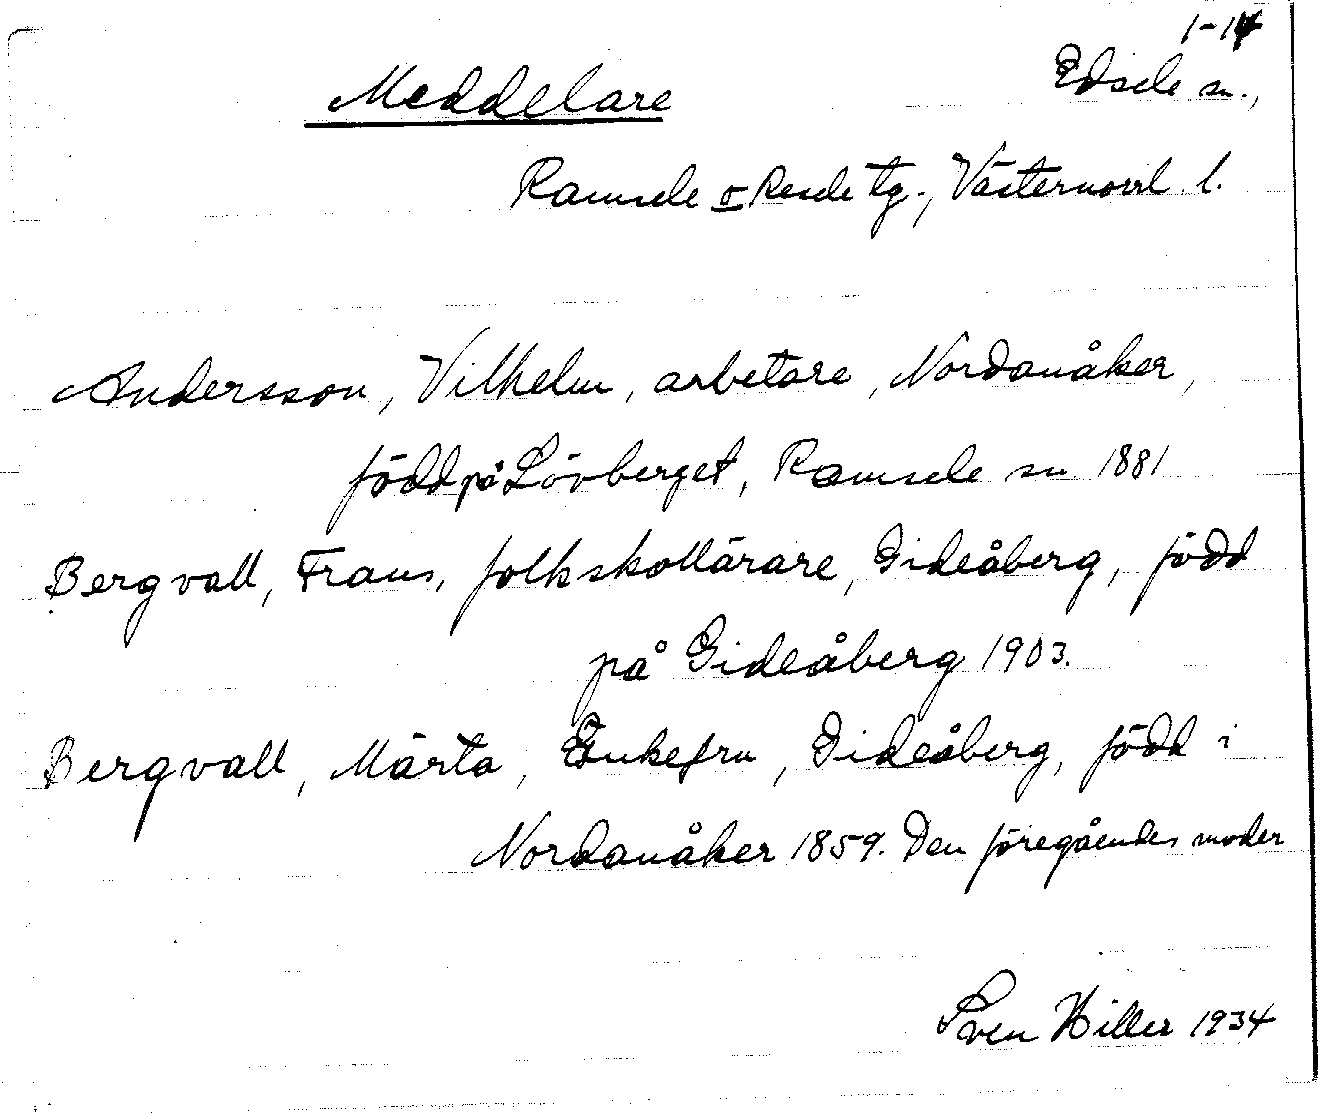 1-14
Meddelare Edsele sn.,
Ramsele o Resele tg., Västernorrl. l.
Andersson, Vilhelm, arbetare, Nordanåker,
född på Lövberget, Ramsele sn 1881
Bergvall, Frans, folkskollärare, Gideåberg, född
på Gideåberg 1903.
Bergvall, Märta, Änkefru, Gideåberg, född i
Nordanåker 1859. Den föregåendes moder
Sven Hiller 1934